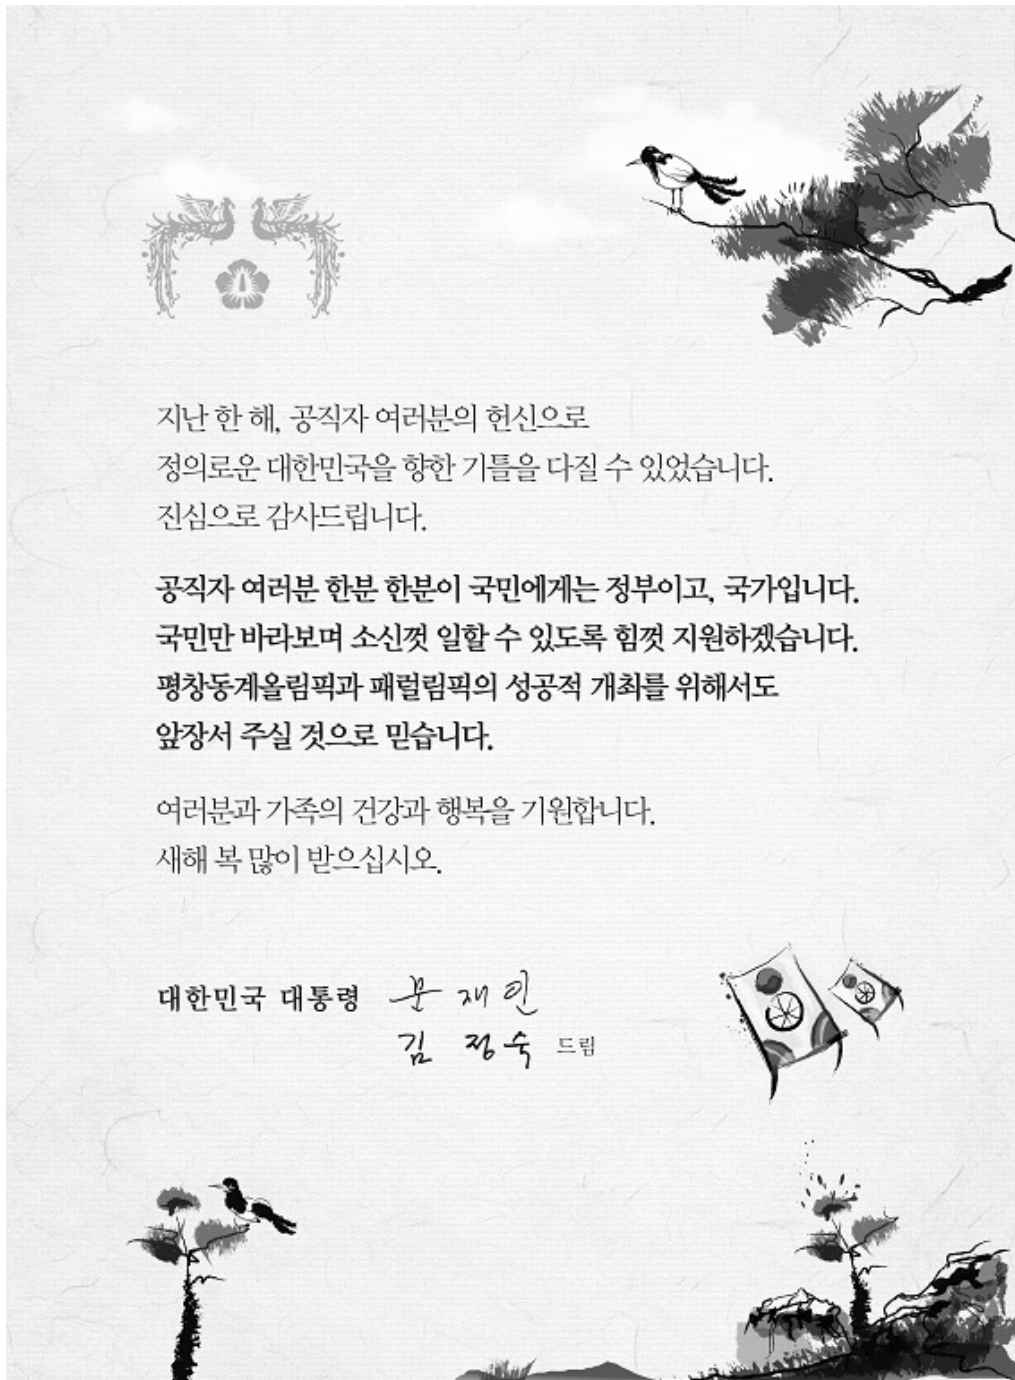 지난 한 해, 공직자 여러분의 헌신으로
정의로운 대한민국을 향한 기틀을 다질 수 있었습니다.
진심으로 감사드립니다.
공직자 여러분 한분 한분이 국민에게는 정부이고, 국가입니다.
국민만 바라보며 소신껏 일할 수 있도록 힘껏 지원하겠습니다.
평창동계올림픽과 패럴림픽의 성공적 개최를 위해서도
앞장서 주실 것으로 믿습니다.
여러분과 가족의 건강과 행복을 기원합니다.
새해 복 많이 받으십시오.
대한민국 대통령 문재인
김정숙 드림